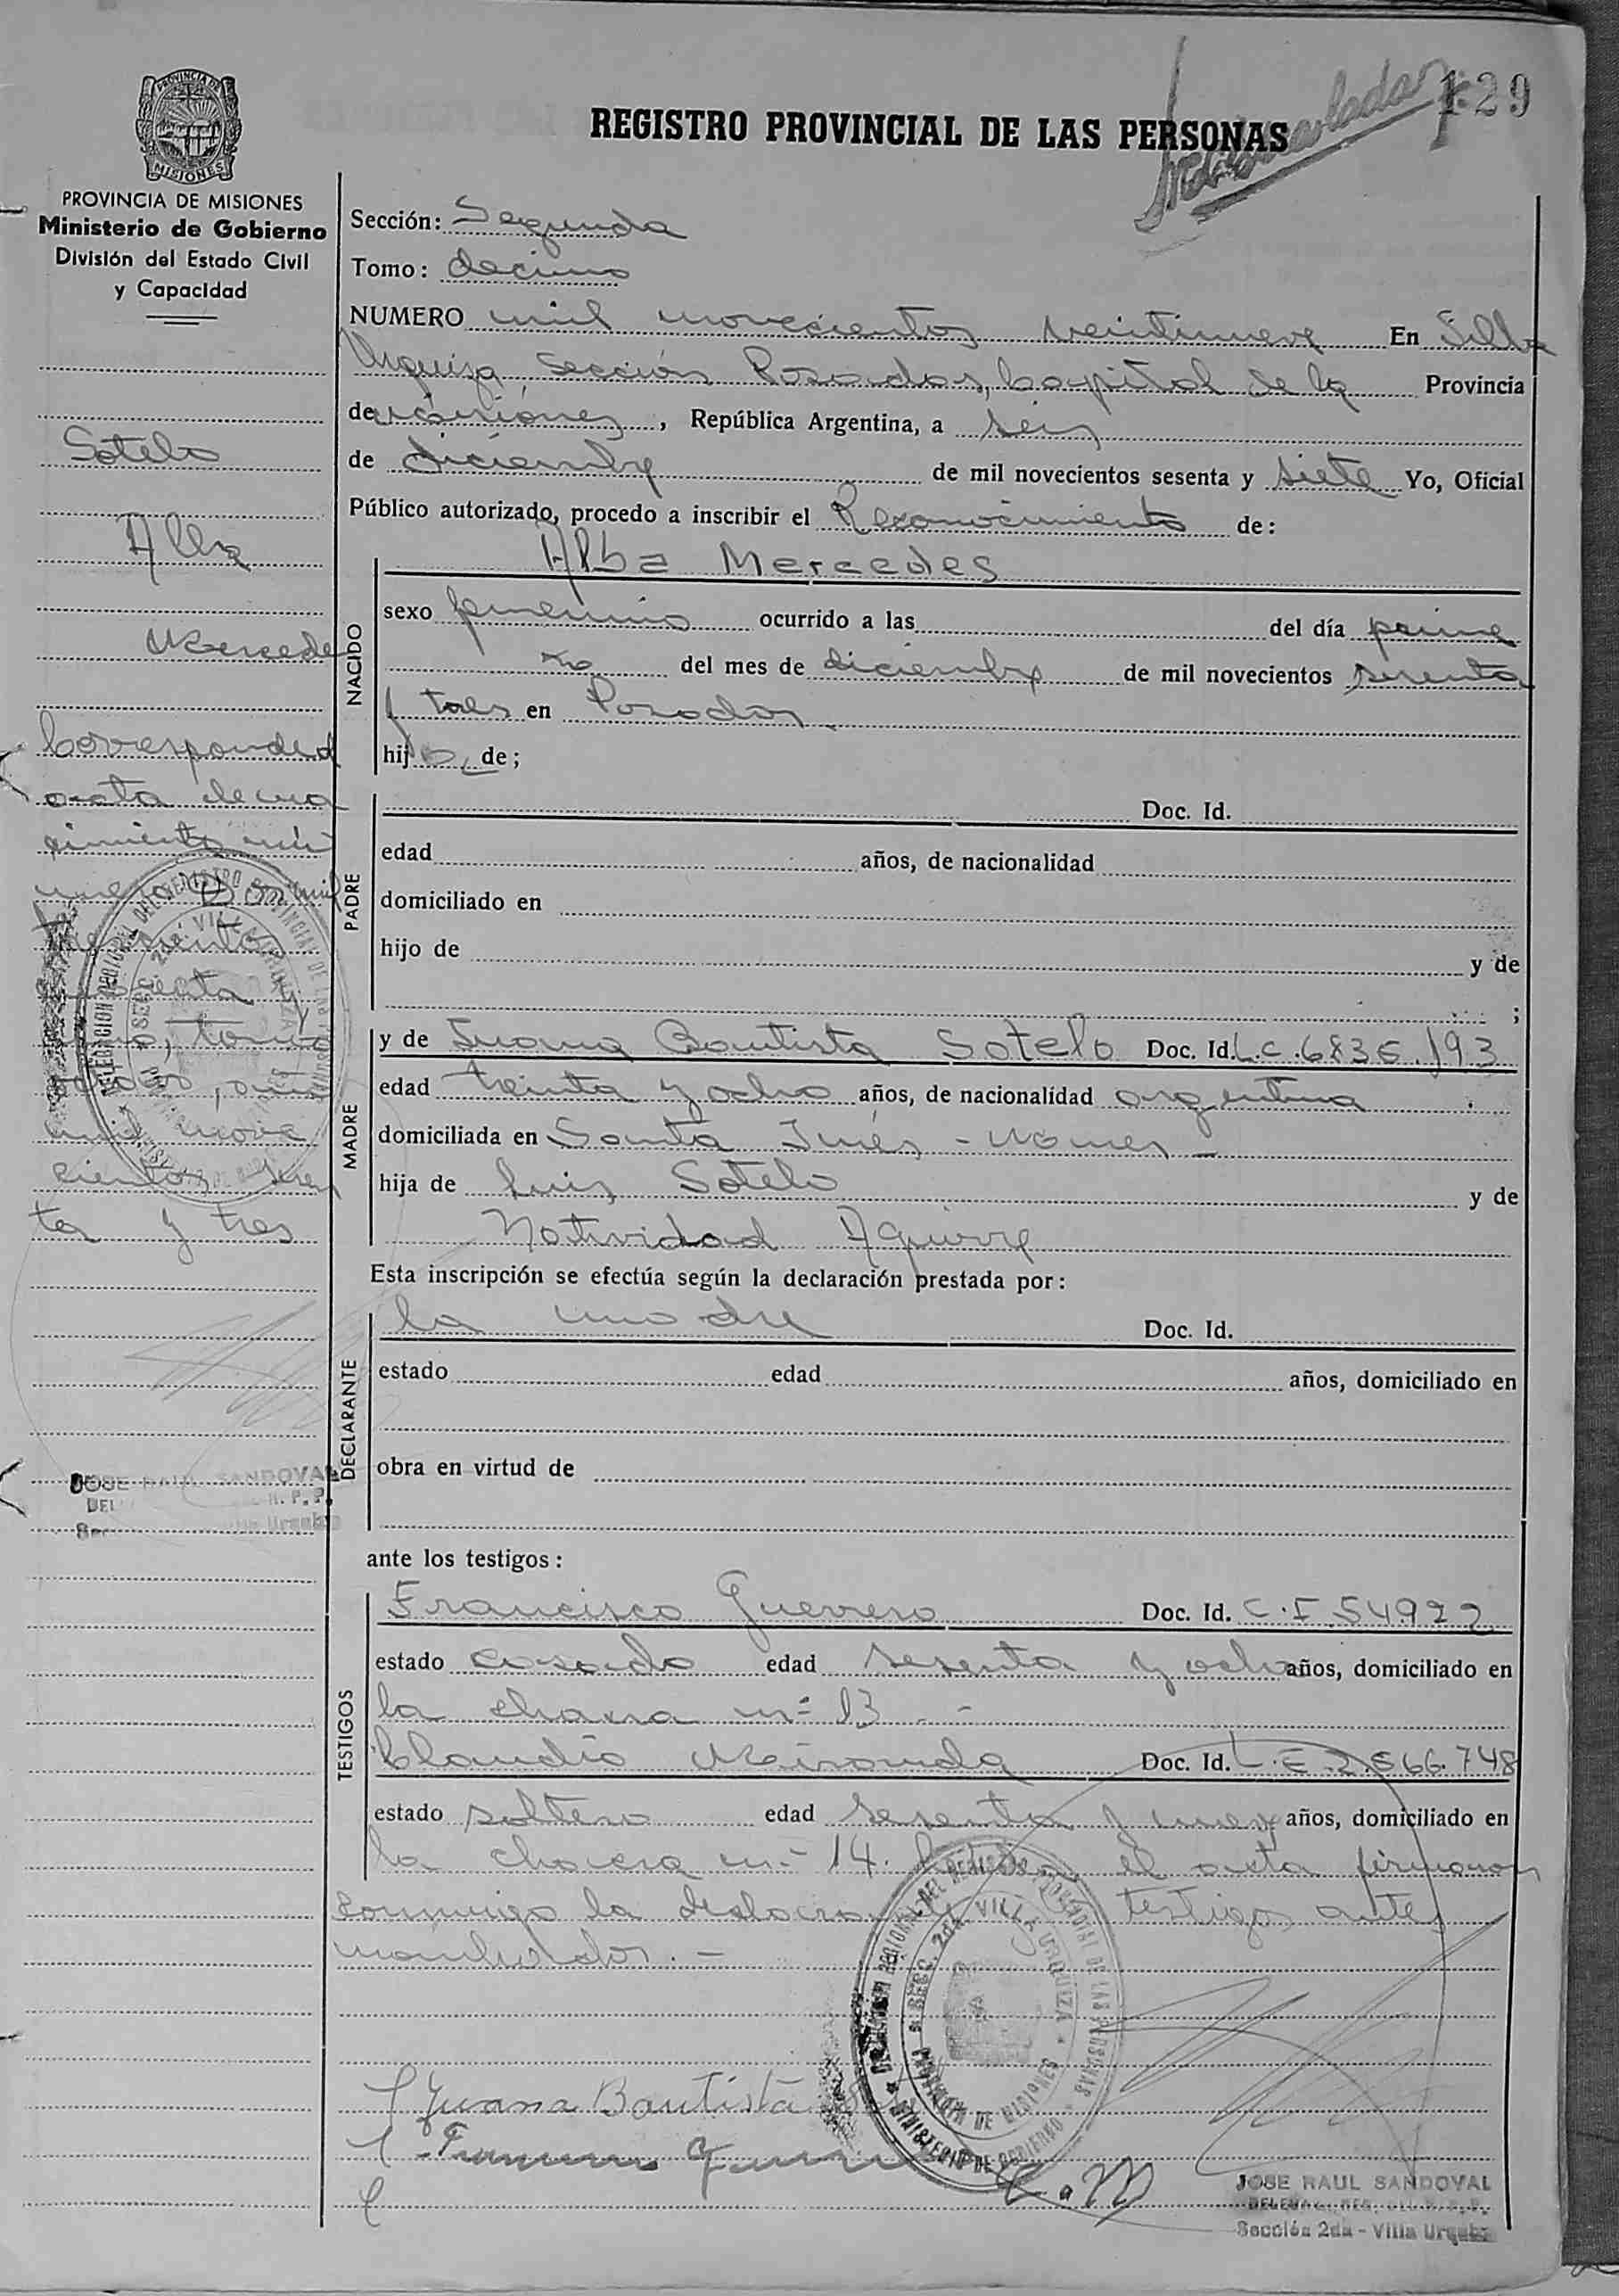 129
REGISTRO PROVINCIAL DE LAS PERSONAS
PROVINCIA DE MISIONES
Ministerio de Gobierno
División del Estado Civil
y Capacidad
Sotelo
Alba
Mercedes
Corresponded
acta de na
cimiento nú
mero Dos mil
y
tomo
mil nove
cientos sesen
ta y tres
JOSE RAUL SANDOVAL
Sección: Segunda
Tomo: decimo
NUMERO mil novecientos veintinueve En Villa
Urquiza, Sección Posadas, Capital de la Provincia
de Misiones, República Argentina, a seis
de diciembre de mil novecientos sesenta y siete Yo, Oficial
Público autorizado, procedo a inscribir el Reconocimiento de:
Alba Mercedes
NACIDO
sexo femenino ocurrido a las del día prime
ro del mes de diciembre de mil novecientos sesenta
y tres en Posadas
hija de;
PADRE
Doc. Id.
edad años, de nacionalidad
domiciliado en
hijo de y de
;
MADRE
y de Juana Bautista Sotelo Doc. Id. L.C. 6835.193
edad treinta y ocho años, de nacionalidad argentina
domiciliada en Santa Inés -
hija de Luis Sotelo y de
Natividad Aguirre
Esta inscripción se efectúa según la declaración prestada por:
DECLARANTE
la madre Doc. Id.
estado edad años, domiciliado en
obra en virtud de
ante los testigos:
TESTIGOS
Francisco Guerrero Doc. Id. C.I. 54922
estado casado edad sesenta y ocho años, domiciliado en
la chacra nº 13 . -
Claudio Miranda Doc. Id. L.E. 2.566.748
estado soltero edad sesenta y nueve años, domiciliado en
la chacra nº 14. el acta firmaron
conmigo la declarante testigos antes
nombrados. -
DELEGACION REGIONAL DEL REGISTRO PROVINCIAL DE LAS PERSONAS
SECC. 2da. VILLA URQUIZA
PROVINCIA DE MISIONES
MINISTERIO DE GOBIERNO
Juana Bautista
Francisco Guerrero
C. M
JOSE RAUL SANDOVAL
Sección 2da - Villa Urquiza